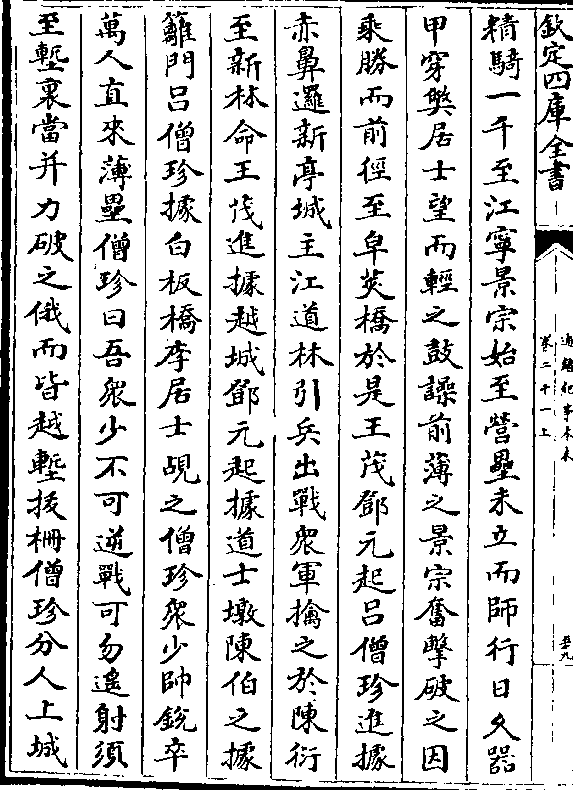 欽定四庫全書
通鑑紀事本末
卷二十一上
精騎一千至江寧景宗始至營壘未立而師行日久器
甲穿𡚁居士望而輕之鼓譟前薄之景宗奮擊破之因
乘勝而前徑至皁莢橋於是王茂鄧元起呂僧珍進據
赤鼻邏新亭城主江道林引兵出戰衆軍擒之於陳衍
至新林命王茂進據越城鄧元起據道士墩陳伯之據
籬門呂僧珍據白板橋李居士覘之僧珍衆少帥銳卒
萬人直來薄壘僧珍曰吾衆少不可逆戰可勿遙射須
至塹裏當并力破之俄而皆越塹拔柵僧珍分人上城